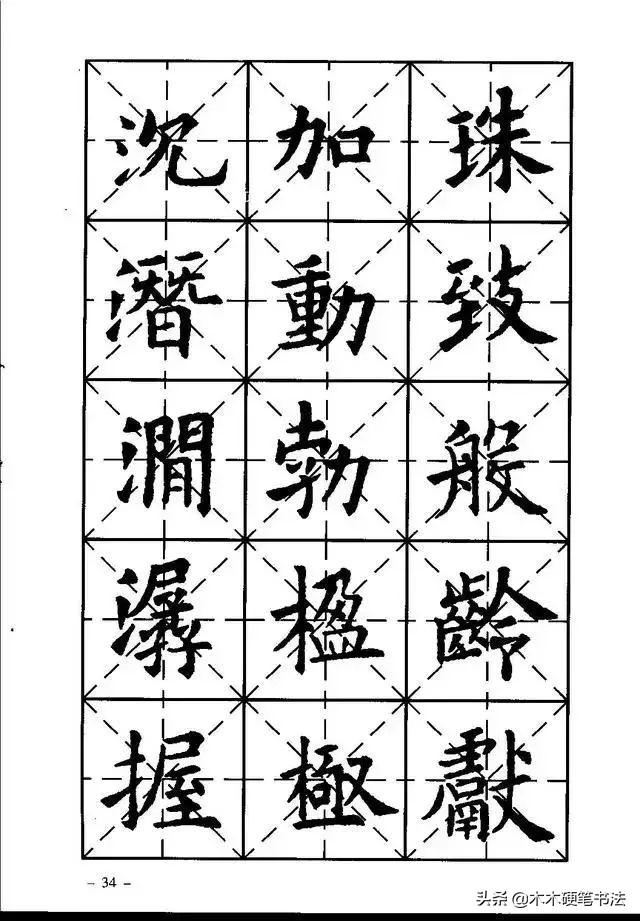 珠致般齡獻
加動勃楹極
沉潛澗潺握
- 34 -
头条 @木木硬笔书法